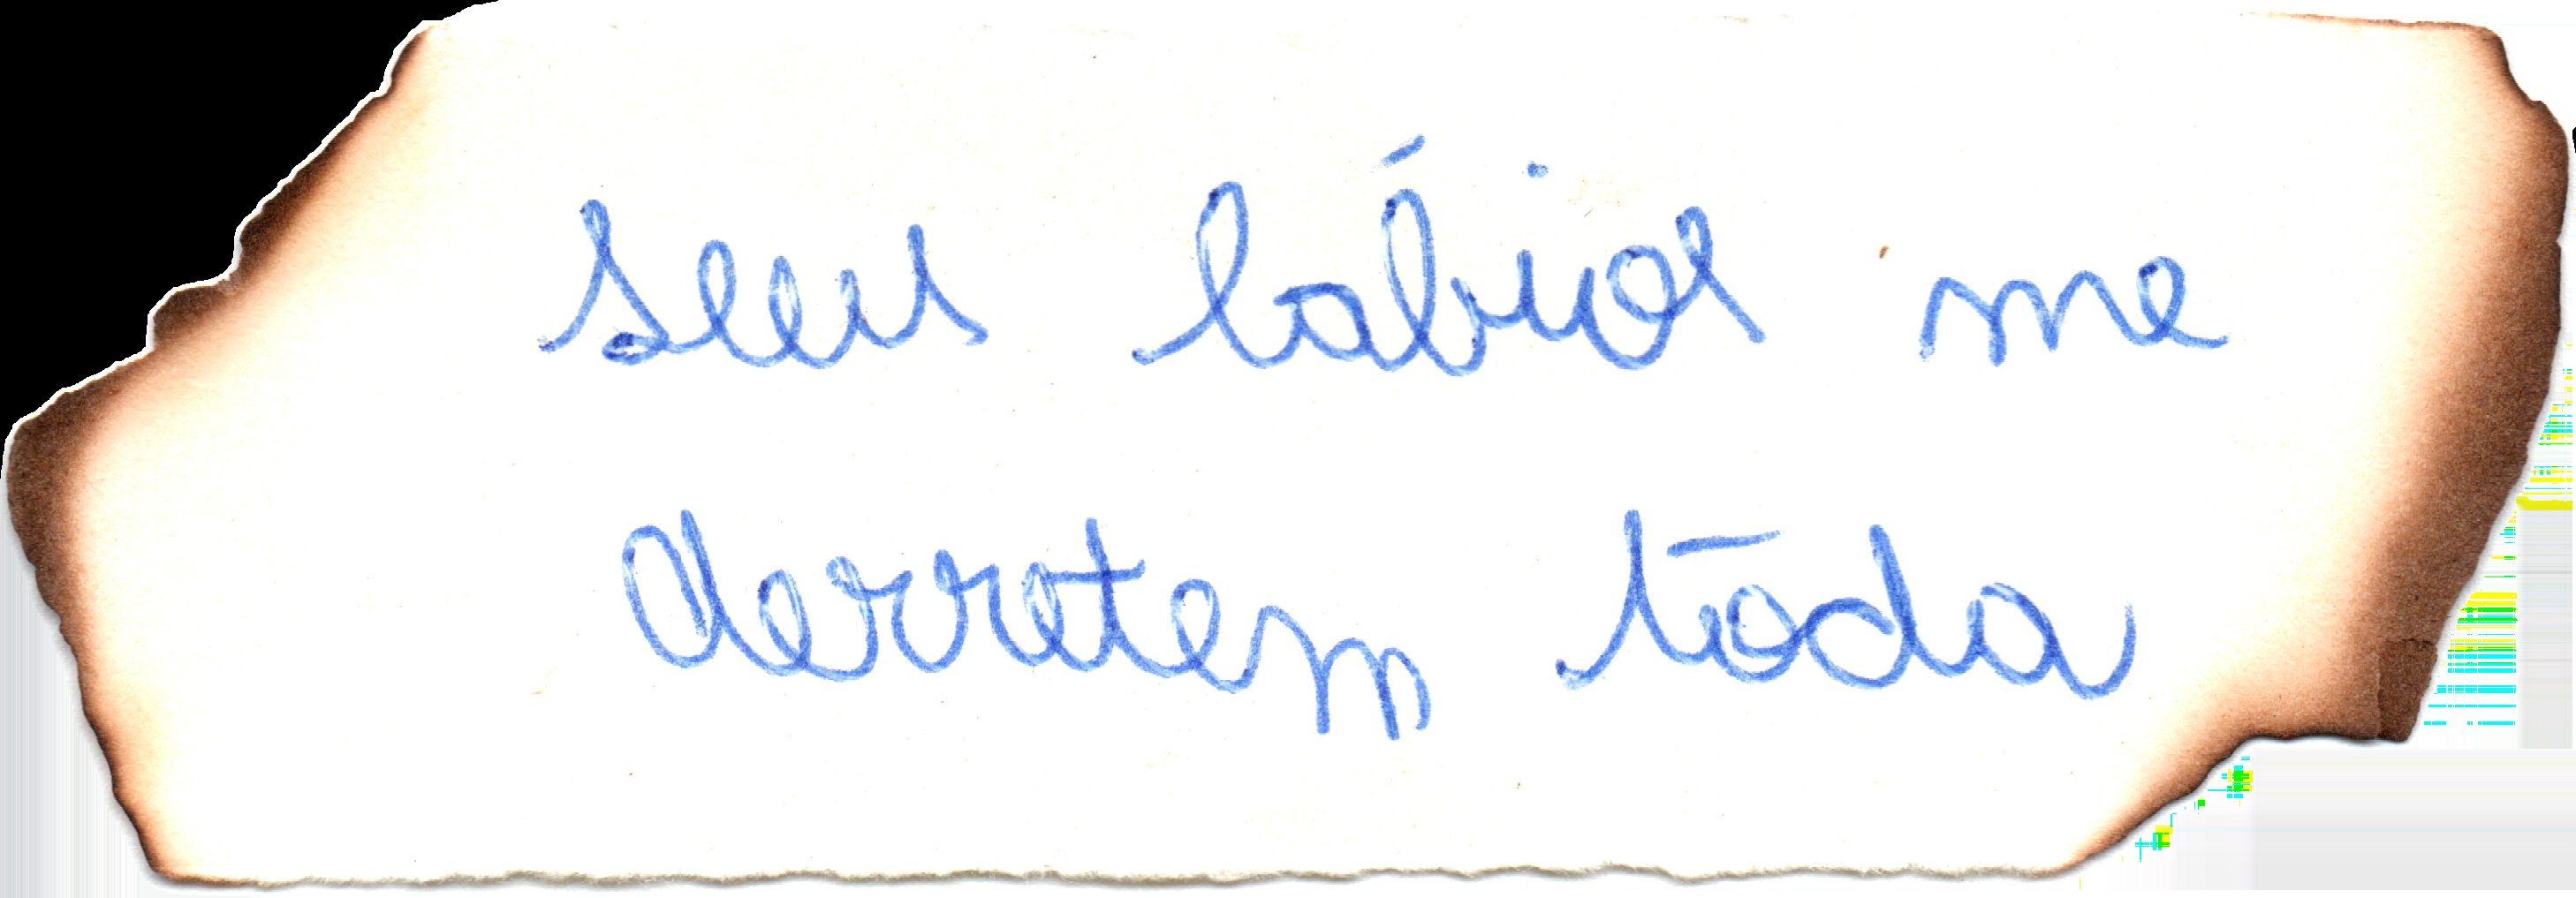 seus lábios me
derretem toda